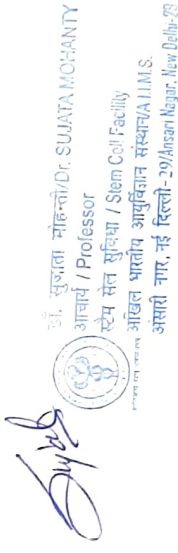 डॉ. सुजाता मोहन्ती/Dr. SUJATA MOHANTY
आचार्य / Professor
स्टेम सेल सुविधा / Stem Cell Facility
अखिल भारतीय आयुर्विज्ञान संस्थान/A.I.I.M.S.
अंसारी नगर, नई दिल्ली - 29/Ansari Nagar, New Delhi-29